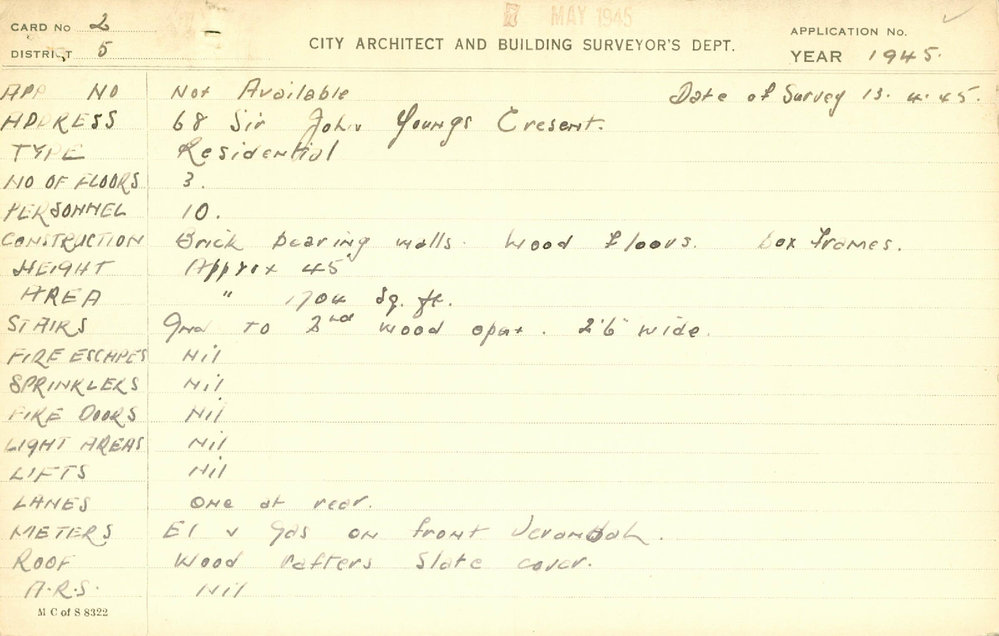 CARD No 2
DISTRICT 5
MAY 1945
CITY ARCHITECT AND BUILDING SURVEYOR'S DEPT.
APPLICATION No.
YEAR 1945.
APP NO Not Available Date of Survey 13. 4. 45.
ADDRESS 68 Sir John Youngs Cresent.
TYPE Residential
NO OF FLOORS 3.
PERSONNEL 10.
CONSTRUCTION Brick bearing walls. Wood floors. box frames.
HEIGHT Approx 45'
AREA " 1704 Sq. ft.
STAIRS Gnd to 2nd wood open. 2'6" wide.
FIRE ESCAPES Nil
SPRINKLERS Nil
FIRE DOORS Nil
LIGHT AREAS Nil
LIFTS Nil
LANES One at rear.
METERS El & Gas on front Verandah.
ROOF Wood rafters Slate cover.
A.R.S. Nil
M C of S 8322